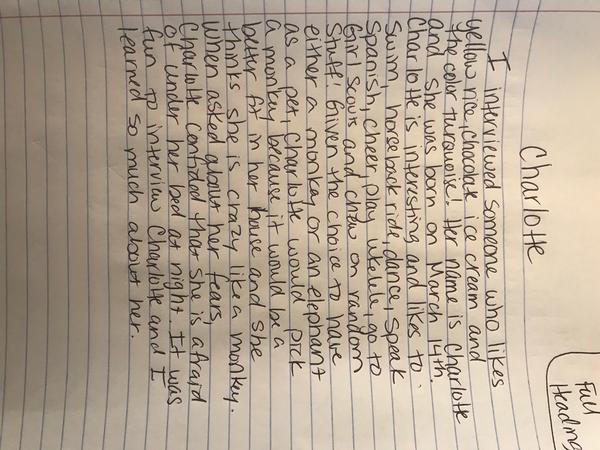 Full
Heading
Charlotte
I interviewed someone who likes
yellow rice, chocolate ice cream and
the color turquoise! Her name is Charlotte
and she was born on March 14th.
Charlotte is interesting and likes to
swim, horseback ride, dance, speak
Spanish, cheer, play ukelele, go to
Girl Scouts and chew on random
stuff. Given the choice to have
either a monkey or an elephant
as a pet, Charlotte would pick
a monkey because it would be a
better fit in her house and she
thinks she is crazy like a monkey.
When asked about her fears,
Charlotte confided that she is afraid
of under her bed at night. It was
fun to interview Charlotte and I
learned so much about her.